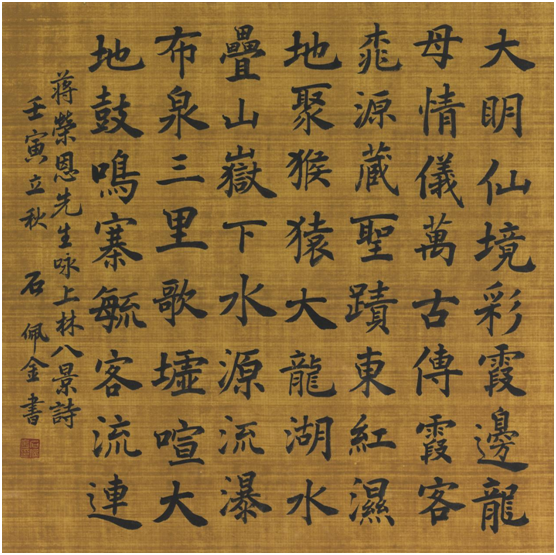 大明仙境彩霞邊龍
母情儀萬古傳霞客
桃源藏聖蹟東紅濕
地聚猴猿大龍湖水
疊山嶽下水源流瀑
布泉三里歌墟喧大
地鼓鳴寨毓客流連
蔣榮恩先生咏上林八景詩
壬寅立秋 石佩金書